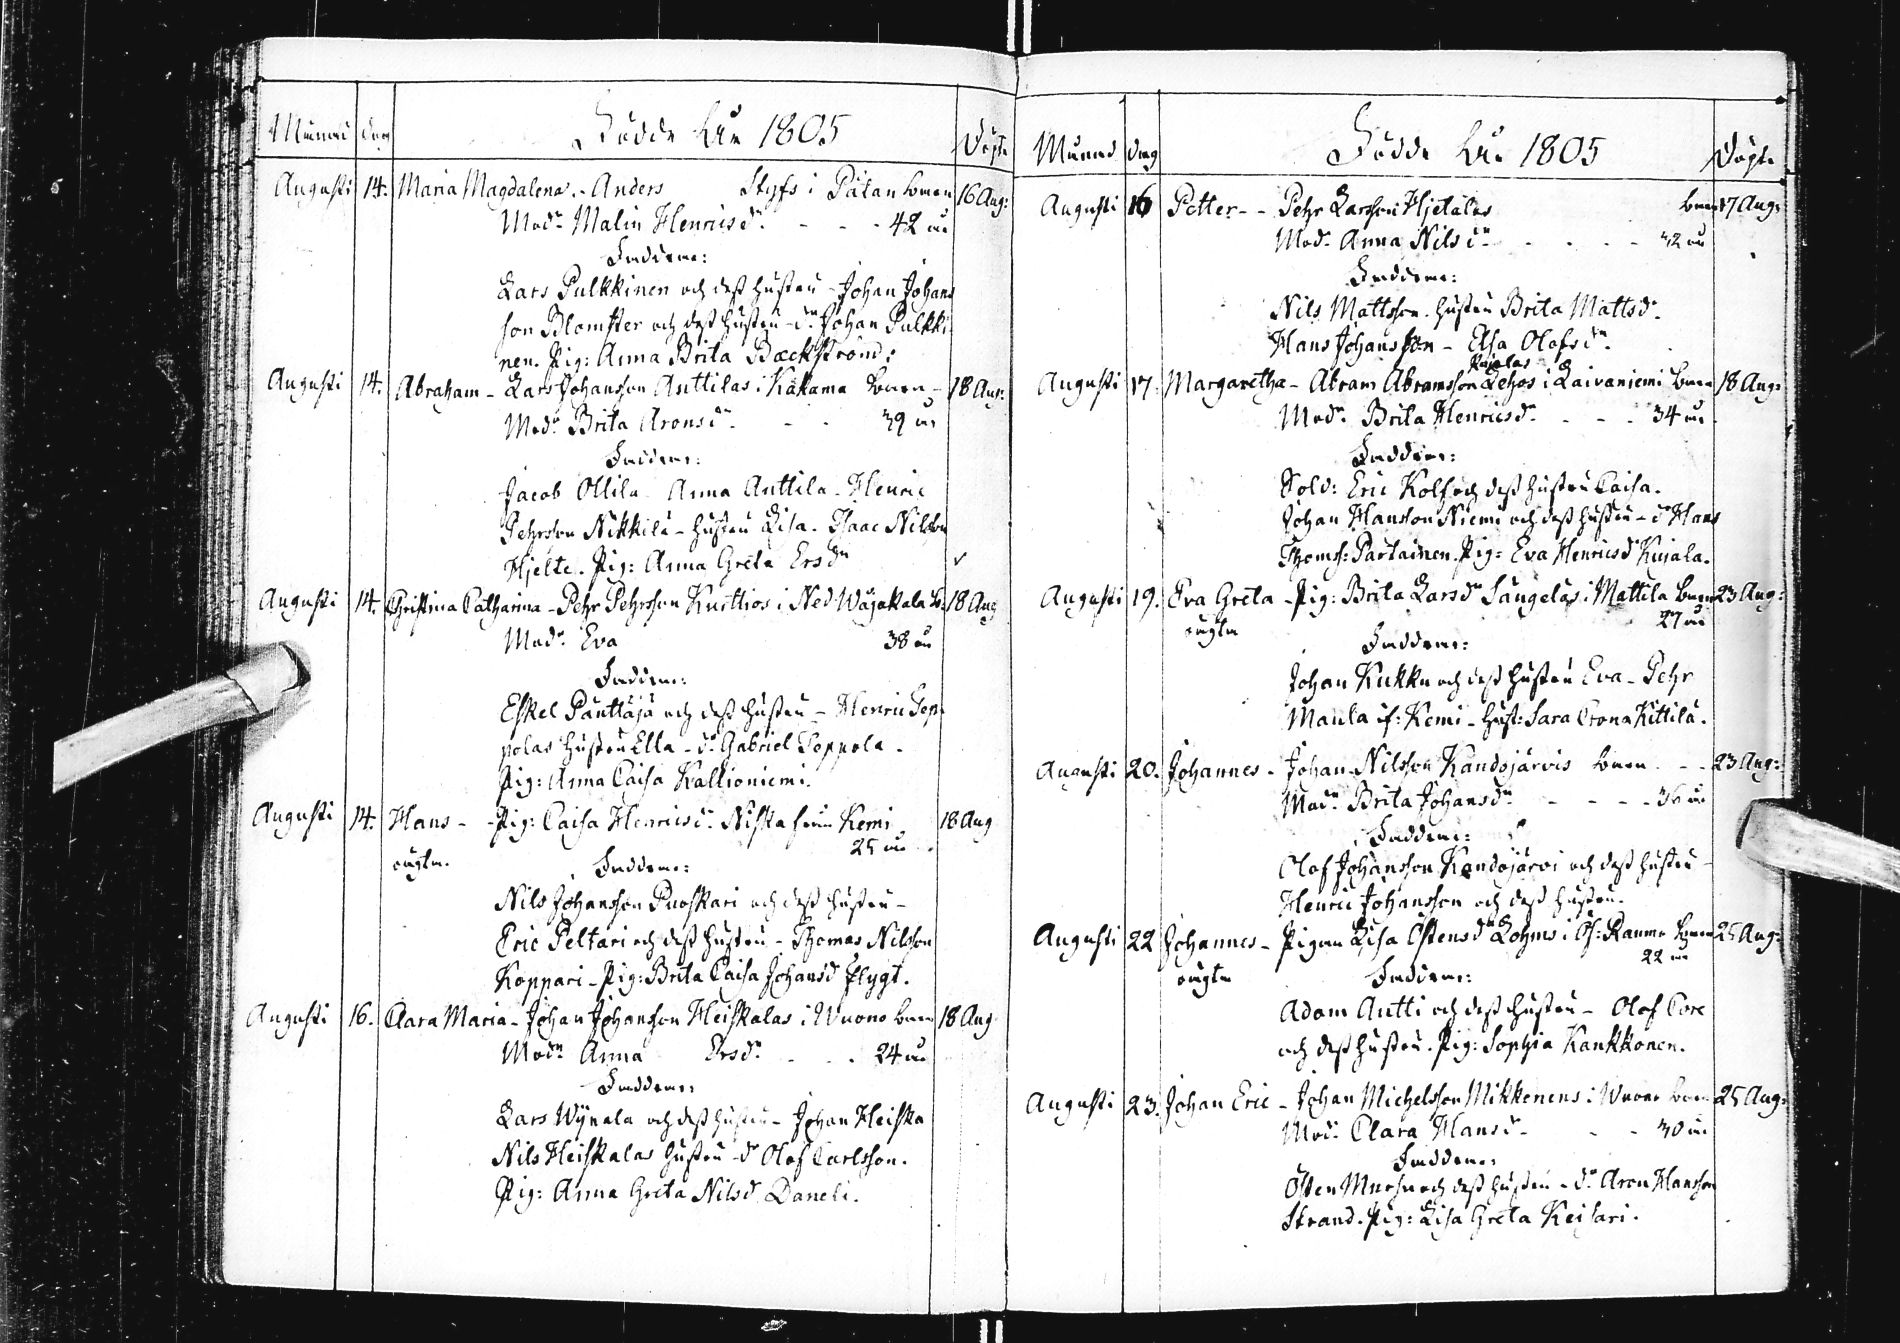 Månad dag Födde Åhr 1805 Döpte
Augusti 14. Maria Magdalena. - Anders Styfs i Påtan barn 16 Aug:
Modr Malin Henricsdr - - - 42 år
Faddrar:
Lars Pulkkinen och dess hustru - Johan Johans
son Blomster och dess hustru - dr Johan Pulkki-
nen. Pig: Anna Brita Bæckström:
Augusti 14. Abraham - Lars Johansson Anttilas i Kakama barn - 18 Aug:
Modr Brita Aronsdr - - 39 år
Faddrar:
Jacob Ollila - Anna Anttila - Henric
Pehrsson Nikkilä - hustru Lisa - Isaac Nilsson
Hjelte. Pig: Anna Greta Ersdr
Augusti 14. Christina Catharina - Pehr Pehrsson Knuttios i Ned Wojakala b: 18 Aug
Modr Eva 38 år
Faddrar:
Eskel Panttaja och dess hustru - Henric Sep-
polas hustru Ella - dr Gabriel Seppola.
Pig: Anna Caisa Kallioniemi.
Augusti 14. Hans - - Pig: Caisa Henricsdr Niska från Kemi 18 Aug
oägta. 25 år
Faddrar:
Nils Johansson Puoskari och dess hustru -
Eric Peltari och dess hustru - Thomas Nilsson
Koppari - Pig: Brita Caisa Johansd Flygt.
Augusti 16. Clara Maria - Johan Johansson Heiskalas i Wuono barn 18 Aug
Modr Anna Ersdr - - 24 år
Faddrar:
Lars Wynala och dess hustru - Johan Heiska
Nils Heiskalas hustru - dr Olof Carlsson.
Pig: Anna Greta Nilsd Daneli.
Månad dag Födde Åhr 1805 Döpte
Augusti 16 Petter - - Pehr Larsson Hjetalas barn 17 Aug:
Modr Anna Nilsdr - - - - 32 år
Faddrar:
Nils Mattsson. hustru Brita Mattsdr
Hans Johansson - Elsa Olofsdr
Rajalas
Augusti 17. Margaretha - Abram Abramsson Lehos i Laivaniemi barn 18 Aug:
Modr Brita Henricsdr - - - 34 år
Faddrar:
Sold: Eric Kolf och dess hustru Caisa.
Johan Hansson Niemi och dess hustru - dr Hans
Thomss: Partainen. Pig: Eva Henricsd Kujala.
Augusti 19. Eva Greta - Pig: Brita Larsdr Sangelas i Mattila barn 23 Aug:
oägta 27 år
Faddrar:
Johan Kukku och dess hustru Eva - Pehr
Maula if: Kemi - Hust: Sara Crona Kittila.
Augusti 20. Johannes - Johan Nilsson Kandojärvis barn - - 23 Aug:
Modr Brita Johansdr - - - - 36 år
Faddrar:
Olof Johansson Kandojärvi och dess hustru -
Henric Johansson och dess hustru.
Augusti 22 Johannes - Pigan Lisa Östensdr Lohms i Öf: Raumo barn 25 Aug:
oägta 22 år
Faddrar:
Adam Autti och dess hustru - Olof Core
och dess hustru. Pig: Sophia Kankkonen.
Augusti 23. Johan Eric - Johan Michelsson Mikkonens i Wuono barn 25 Aug:
Modr Clara Hansdr - - 30 år
Faddrar:
Östen och dess hustru - dr Aron Hansson
Strand. Pig: Lisa Greta Keisari.